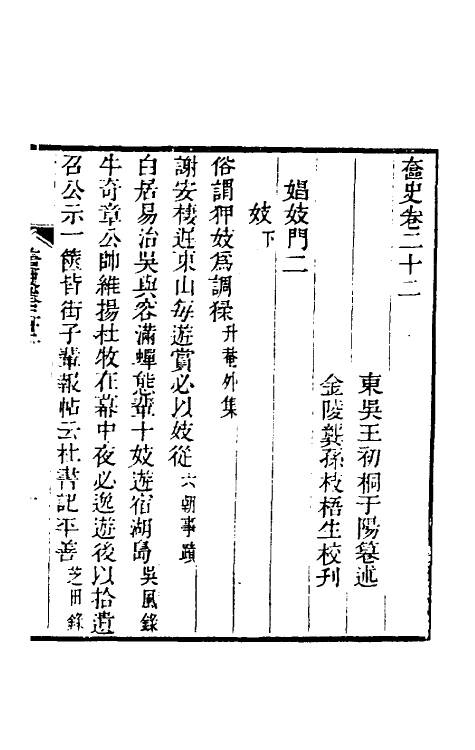 奩史卷二十二
東吳王初桐于陽纂述
金陵龔孫枝梧生校刋
娼妓門二
妓下
俗謂狎妓為調猱升菴外集
謝安棲遲東山每遊賞必以妓從六朝事蹟
白居易治吳與容滿蟬態輩十妓遊宿湖島吳風錄
牛奇章公帥維揚杜牧在幕中夜必逸遊後以拾遺
召公示一篋皆街子輩報帖云杜書記平善芝田錄